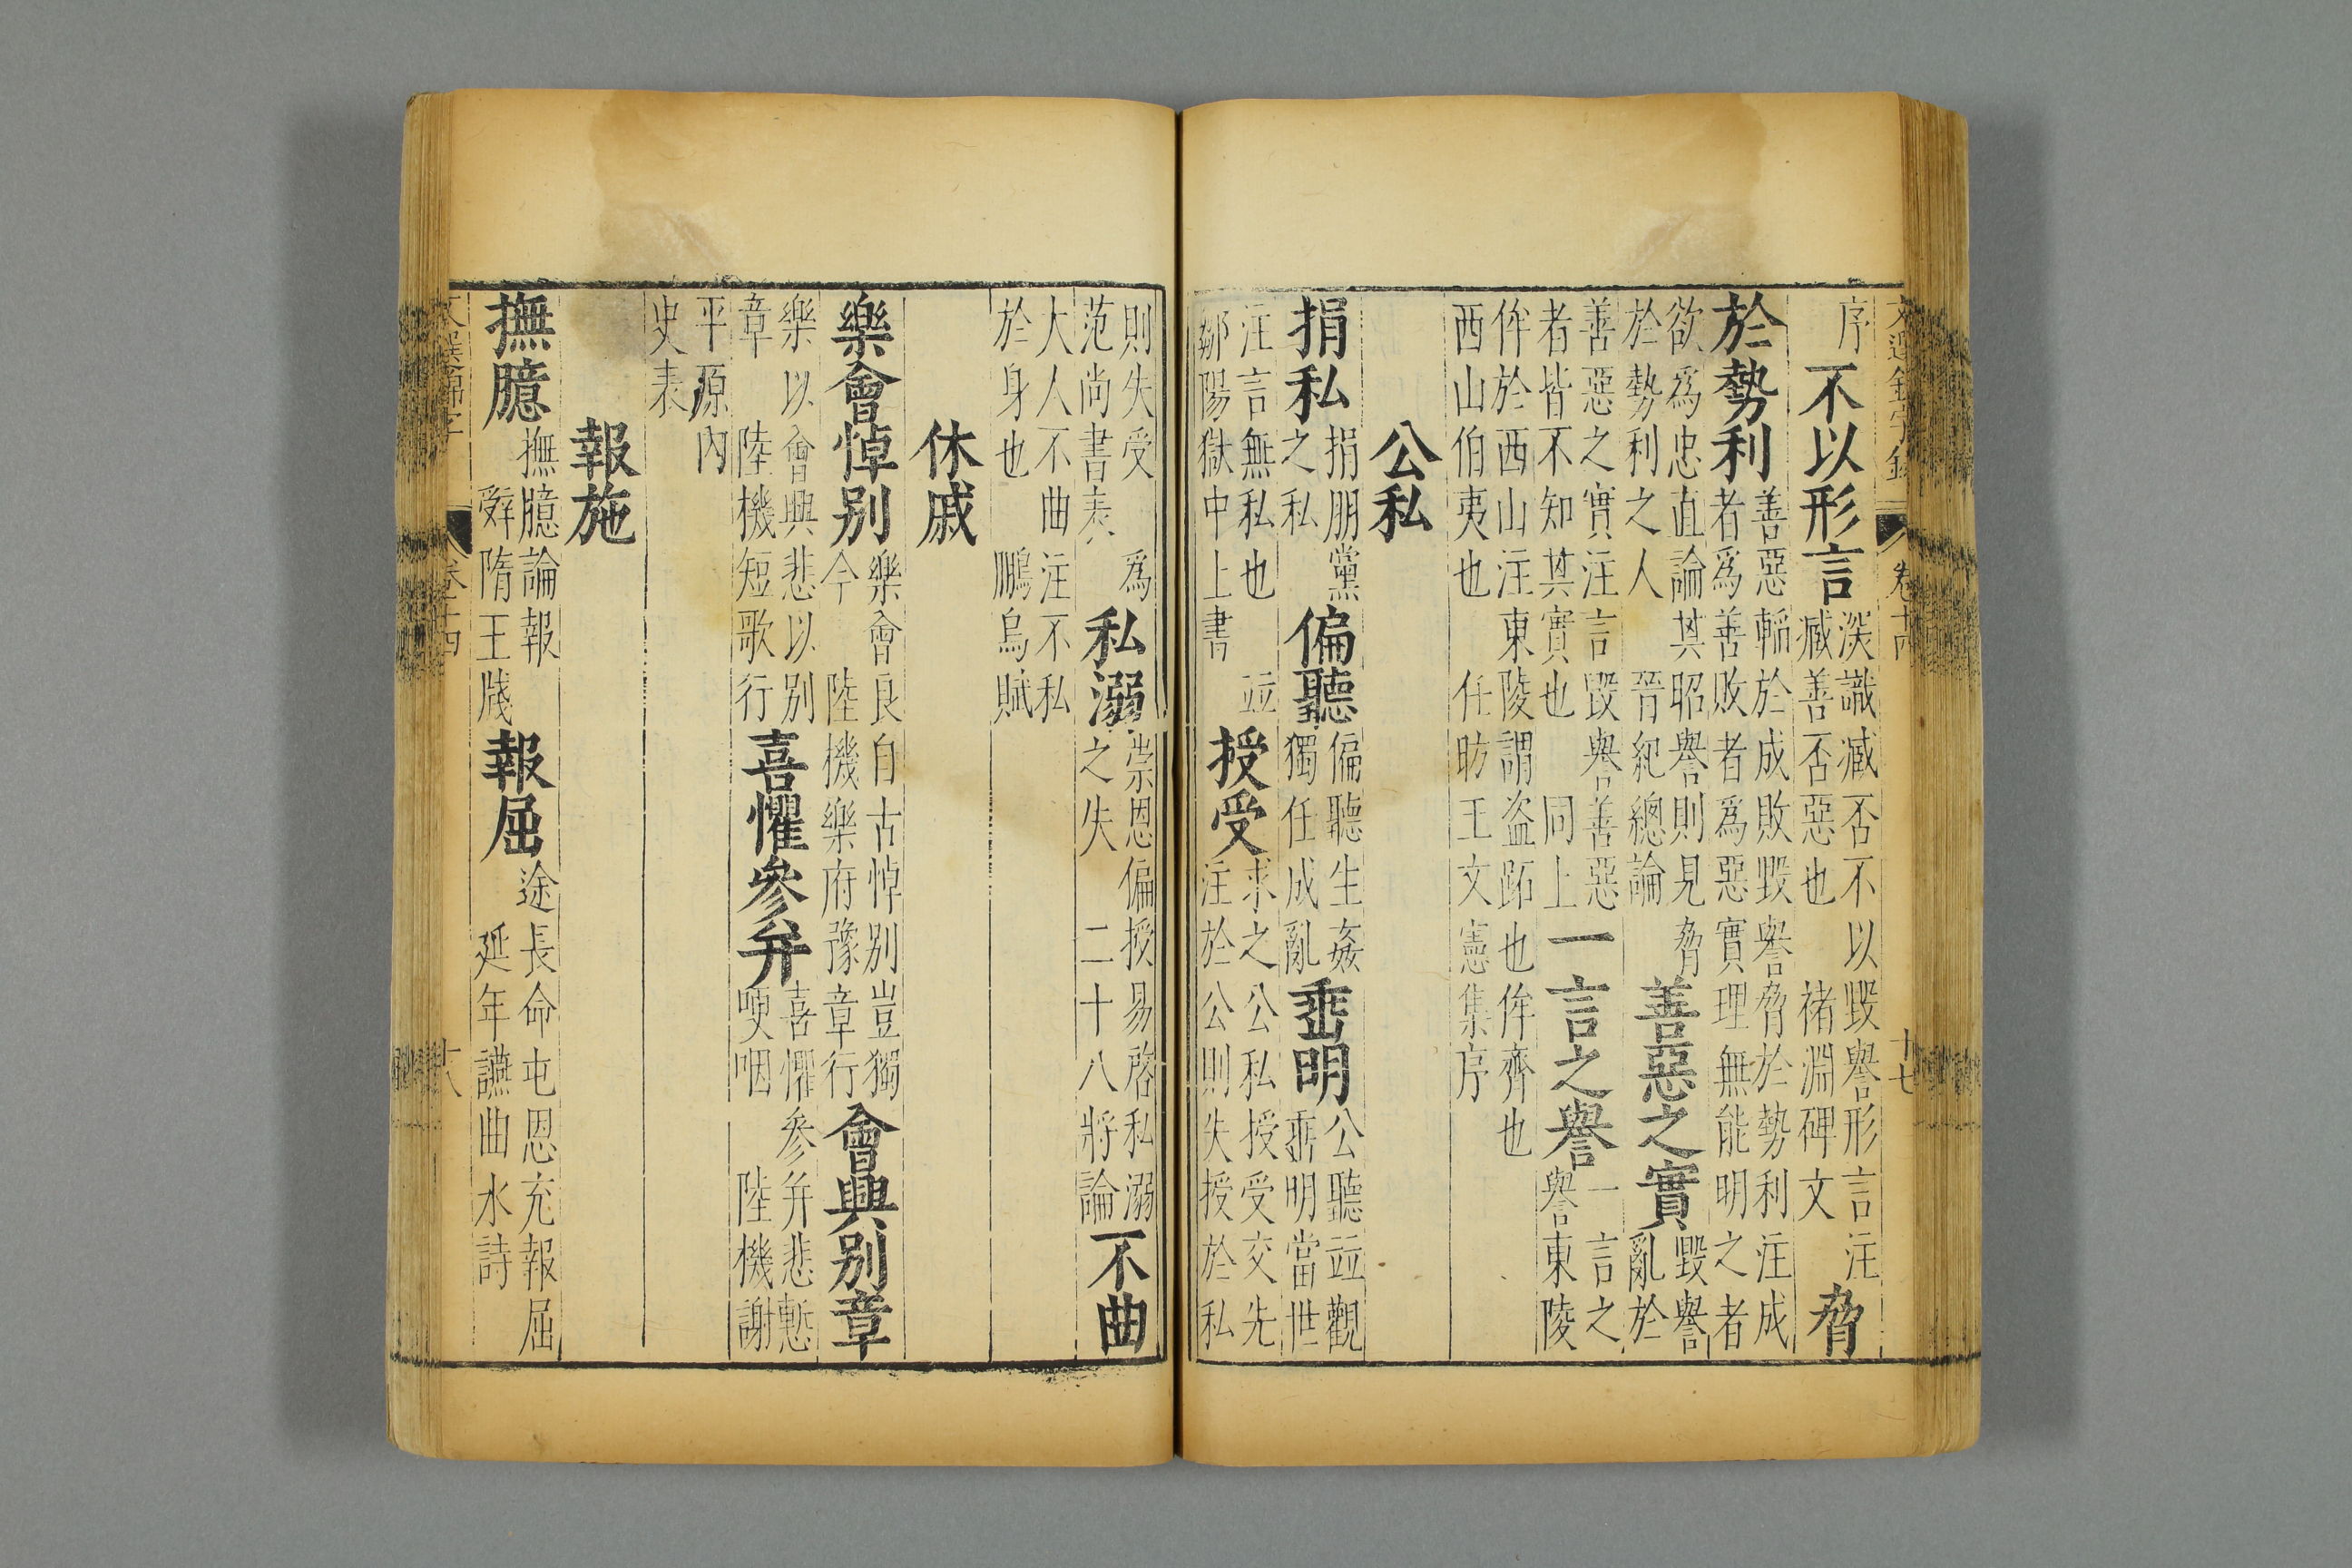 卷十四 十七
序 不以形言 深識臧否不以毀譽形言注
臧善否惡也 褚淵碑文 脅
於勢利 善惡䡄於成敗毀譽脅於勢利注成
者爲善敗者爲惡實理無能明之者
欲爲忠直論其昭譽則見脅
於勢利之人 晉紀總論 善惡之實 毀譽
亂於
善惡之實注言毀譽善惡
者皆不知其實也 同上 一言之譽 一言之
譽東陵
侔於西山注東陵謂盗跖也侔齊也
西山伯夷也 任昉王文憲集序
公私
捐私 捐朋黨
之私 偏聽 偏聽生姦
獨任成亂 垂明 公聽並觀
垂明當世
注言無私也 並
鄒陽獄中上書 授受 求之公私授受交先
注於公則失授於私
則失受 爲
范尚書表 私溺 崇恩偏授易啓私溺
之失 二十八將論 不曲
大人不曲注不私
於身也 鵩鳥賦
休戚
樂會悼別 樂會良自古悼別豈獨
今 陸機樂府豫章行 會興別章
樂以會興悲以別
章 陸機短歌行 喜懼參并 喜懼參并悲慙
哽咽 陸機謝
平原內
史表
報施
撫臆 撫臆論報
辤隋王牋 報屈 途長命屯恩充報屈
延年讌曲水詩
卷十四 十八